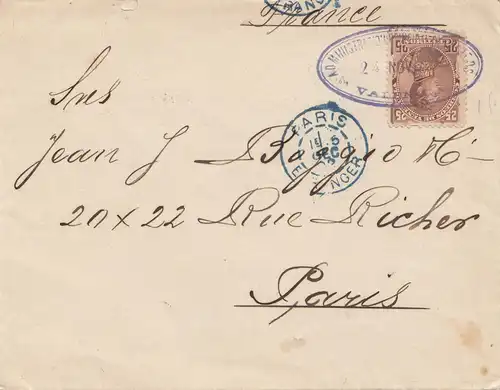 France
Sns
Jean J Boggio Hno
20 x 22 Rue Richer
Paris
PARIS
ETRANGER
25
25